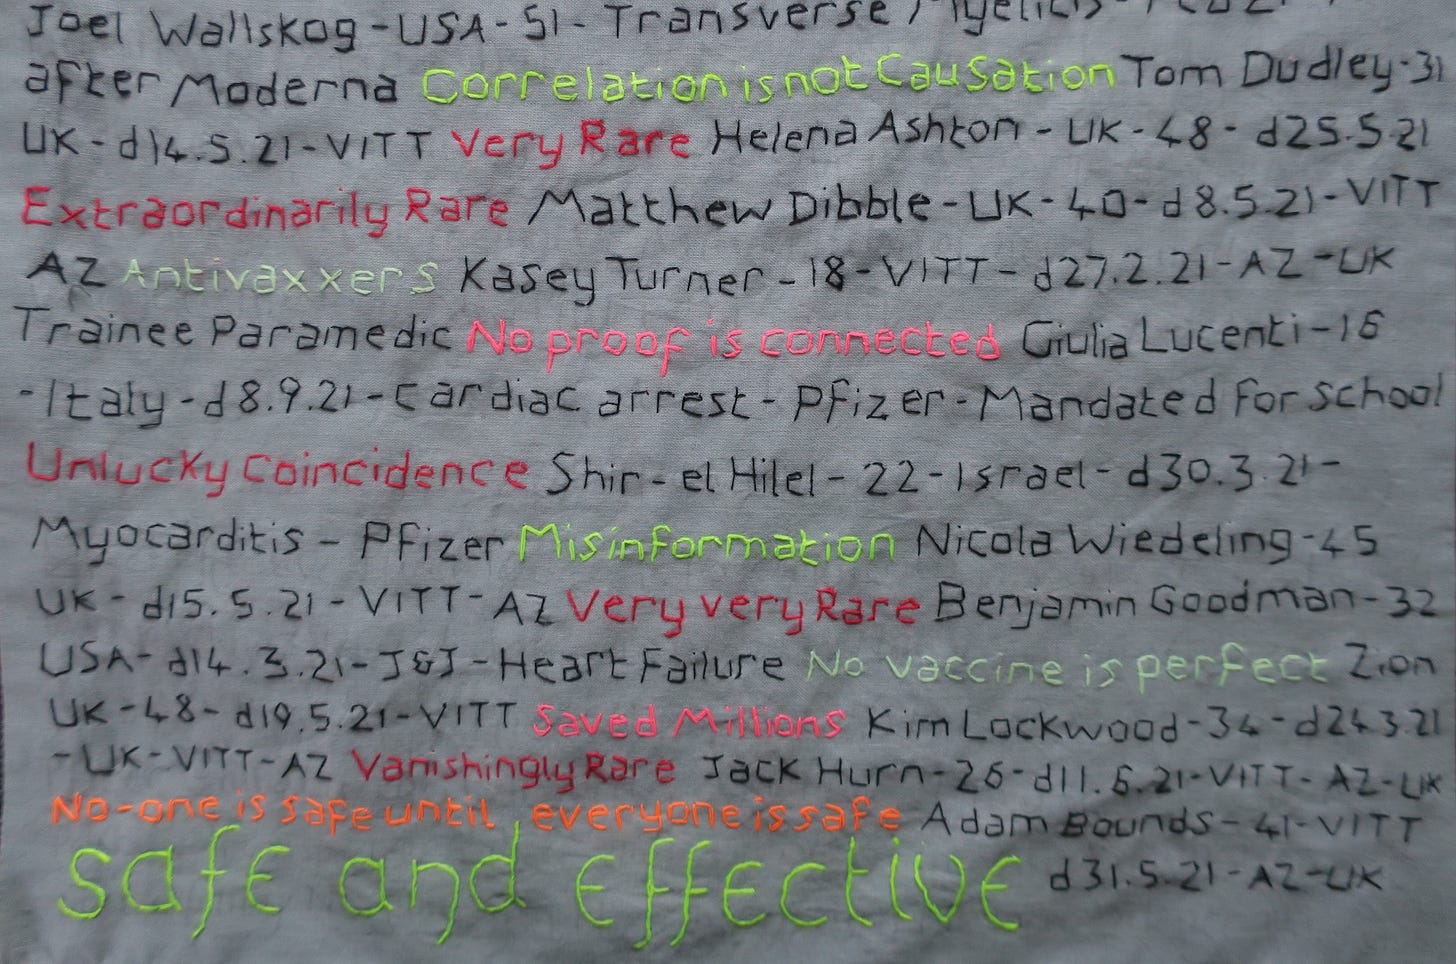 Joel Wallskog - USA - 51 - Transverse Myelitis -
after Moderna Correlation is not Causation Tom Dudley - 31
UK - d14.5.21 - VITT Very Rare Helena Ashton - UK - 48 - d25.5.21
Extraordinarily Rare Matthew Dibble - UK - 40 - d8.5.21 - VITT
AZ Antivaxxers Kasey Turner - 18 - VITT - d27.2.21 - AZ - UK
Trainee Paramedic No proof is connected Giulia Lucenti - 16
- Italy - d8.9.21 - Cardiac arrest - Pfizer - Mandated for school
Unlucky Coincidence Shir - el Hilel - 22 - Israel - d30.3.21 -
Myocarditis - Pfizer Misinformation Nicola Wiedeling - 45
UK - d15.5.21 - VITT - AZ Very very Rare Benjamin Goodman - 32
USA - d14.3.21 - J&J - Heart Failure No vaccine is perfect Zion
UK - 48 - d19.5.21 - VITT Saved Millions Kim Lockwood - 34 - d24.3.21
- UK - VITT - AZ Vanishingly Rare Jack Hurn - 26 - d11.6.21 - VITT - AZ - UK
No-one is safe until everyone is safe Adam Bounds - 41 - VITT
safe and effective d31.5.21 - AZ - UK